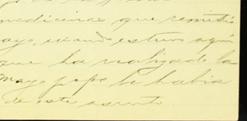 medicinas que remiti
ayo, cuando estuvo aqui
que ha realizado la
mayo papa le habia
de este asunto